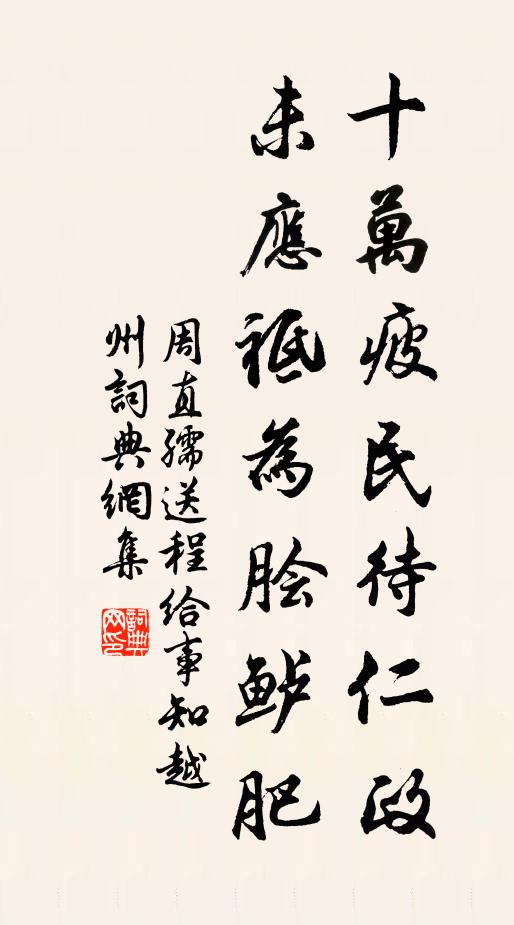 十萬疲民待仁政
未應祇為脍鲈肥
周直孺送程给事知越
州詞典網集
詞典網印